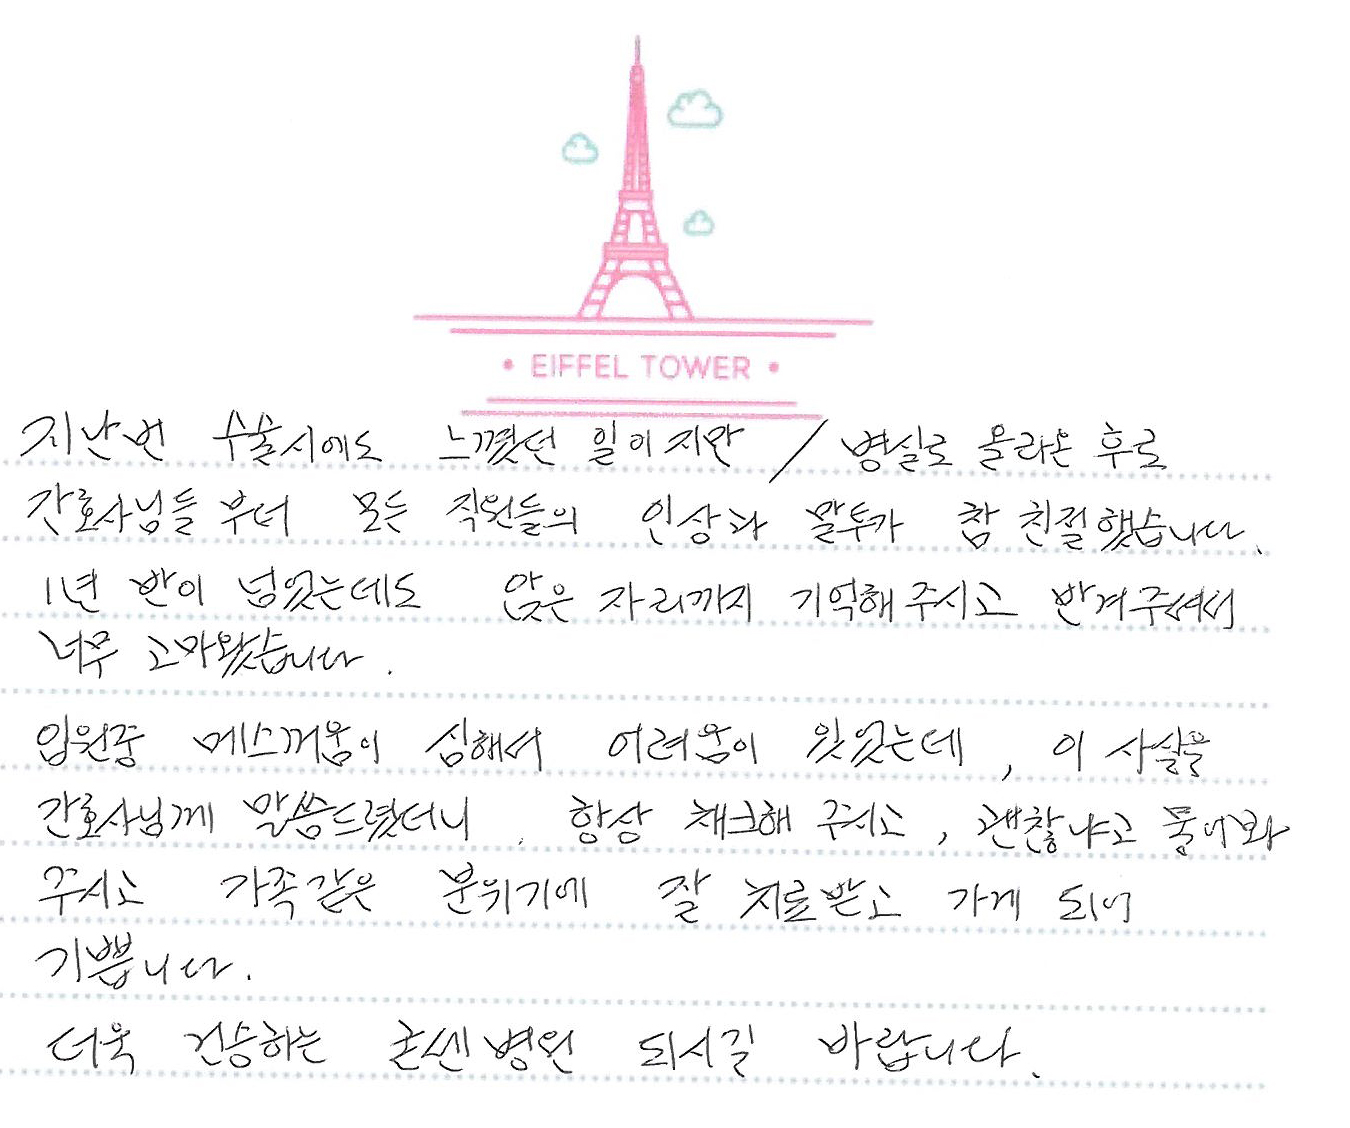 • EIFFEL TOWER •
지난번 수술시에도 느꼈던 일이지만 / 병실로 올라온 후로
간호사님들 부터 모든 직원들의 인상과 말투가 참 친절했습니다.
1년 반이 넘었는데도 앉은 자리까지 기억해 주시고 반겨주셔서
너무 고마왔습니다.
입원중 메스꺼움이 심해서 어려움이 있었는데, 이 사실을
간호사님께 말씀드렸더니, 항상 채크해 주시고, 괜찮냐고 물어봐
주시고 가족같은 분위기에 잘 치료받고 가게 되어
기쁩니다.
더욱 건승하는 굳센병원 되시길 바랍니다.